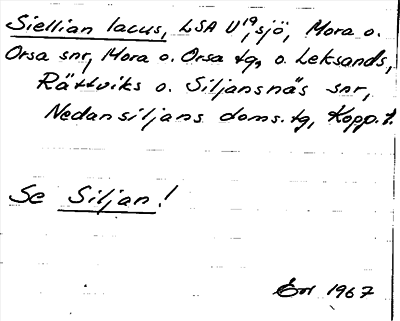 Siellian lacus, LSA U¹⁹, sjö, Mora o.
Orsa snr, Mora o. Orsa tg, o. Leksands,
Rättviks o. Siljansnäs snr,
Nedansiljans doms. tg, Kopp. l.
Se Siljan!
1967